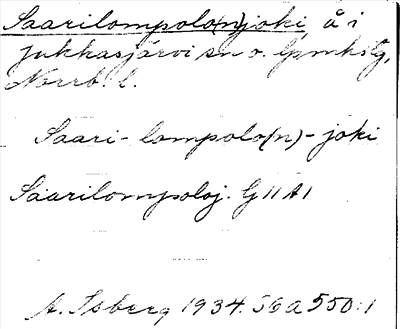 Saarilompolo(n)joki, å i
Jukkasjärvi sn o. lpmkslg,
Norrb. l.
Saari-lompolo(n)-joki
Saarilompoloj. G II A 1
A. Isberg 1934. 56 a 550:1